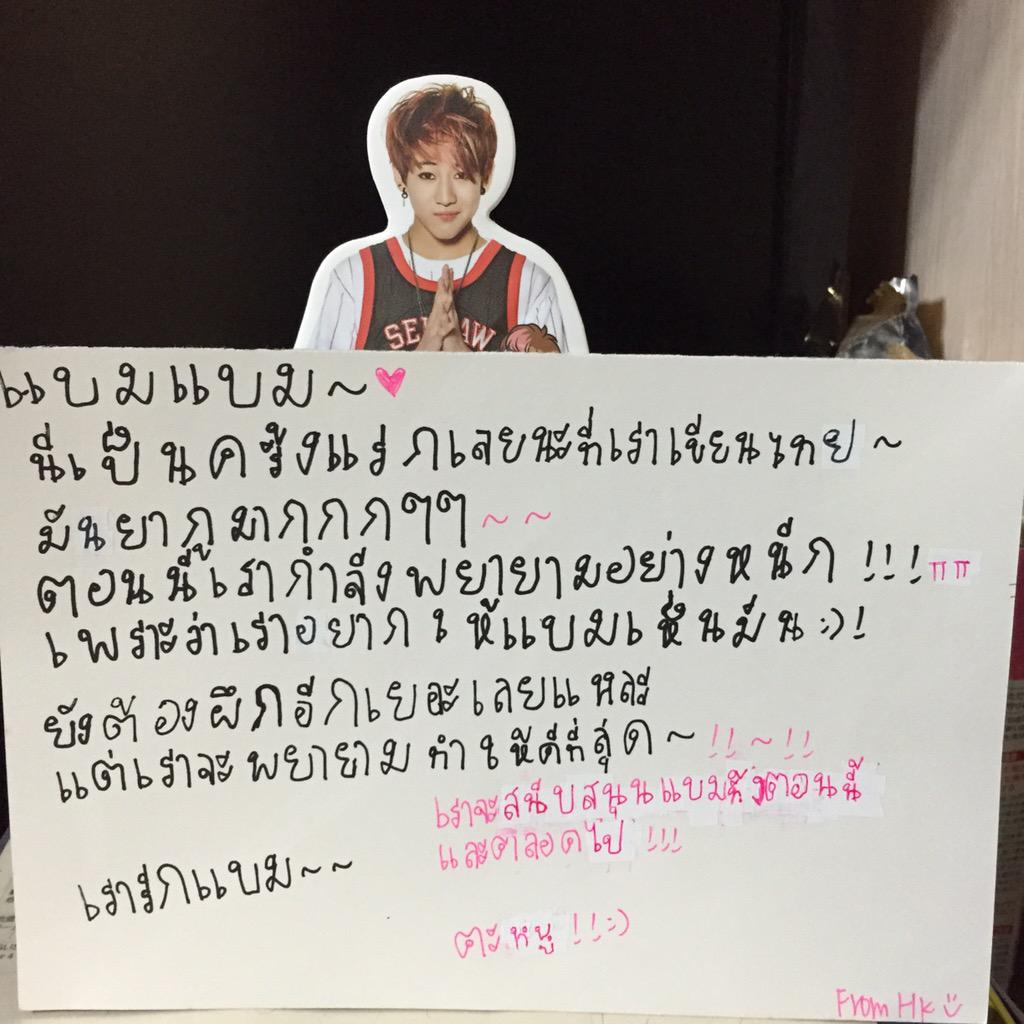 SE AW
แบมแบม~♥
นี่เป็นครั้งแรกเลยนะที่เราเขียนไทย~
มันยากูมากกกๆๆ~~
ตอนนี้เรากำลังพยายามอย่างหนัก!!!ㅠㅠ
เพราะว่าเราอยากให้แบมเห็นมัน:)!
ยังต้องฝึกอีกเยอะเลยแหละ
แต่เราจะพยายามทำให้ดีที่สุด~!!~!!
เราจะสนับสนุนแบมทั้งตอนนี้
และตลอดไป!!!
เรารักแบม~~
ตะหนู!!:)
From Hk